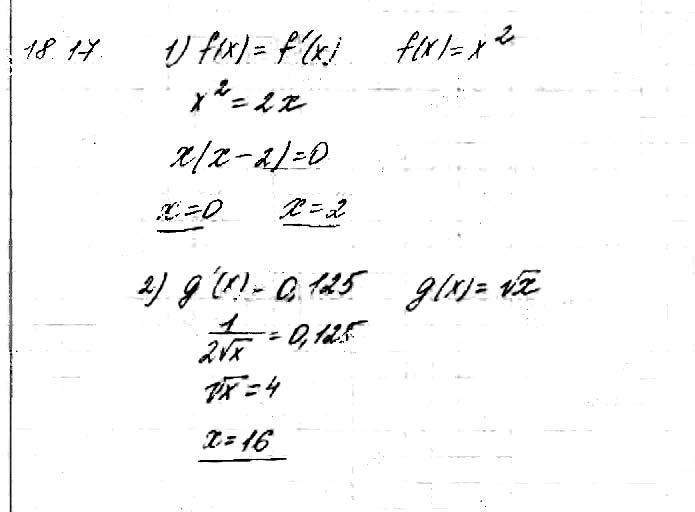 18.17. 1) f(x) = f'(x) f(x) = x²
x² = 2x
x(x-2)=0
x=0 x=2
2) g'(x) - 0,125 g(x) = √x
1/(2√x) = 0,125
√x = 4
x=16